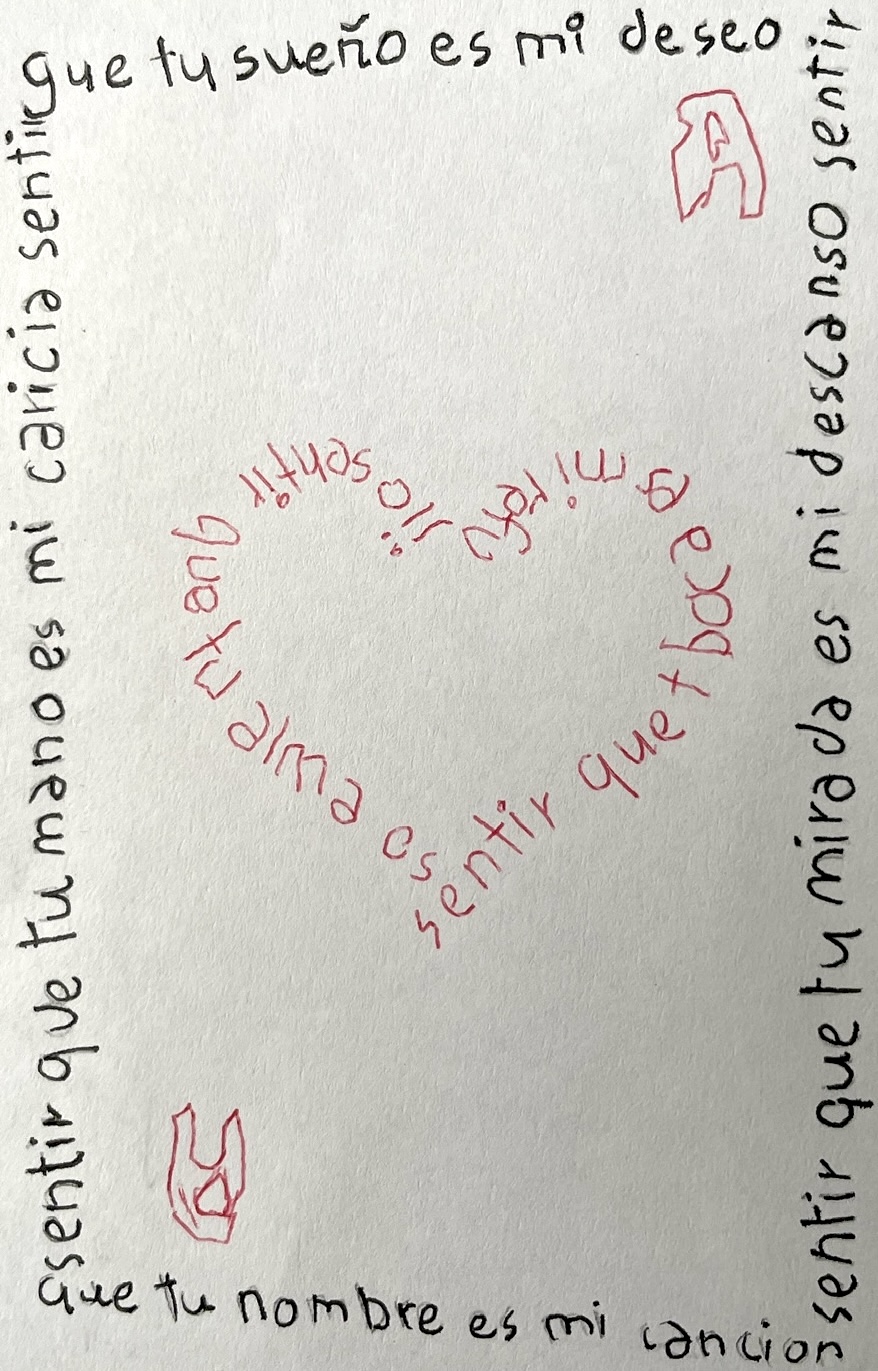 que tu sueño es mi deseo
sentir que tu mano es mi caricia sentir
sentir que tu mirada es mi descanso sentir
que tu nombre es mi cancion
A
A
sentir que t boca e mi refugio sentir que tu alma es